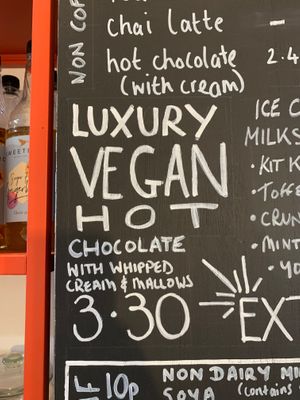 NON COF
chai latte -
hot chocolate 2.4
(with cream)
LUXURY
VEGAN
HOT
CHOCOLATE
WITH WHIPPED
CREAM & MALLOWS
3.30
ICE C
MILKS
• KIT K
• TOFFE
• CRUN
• MINT
• YO
EX
10p NON DAIRY MI
SOYA (contains